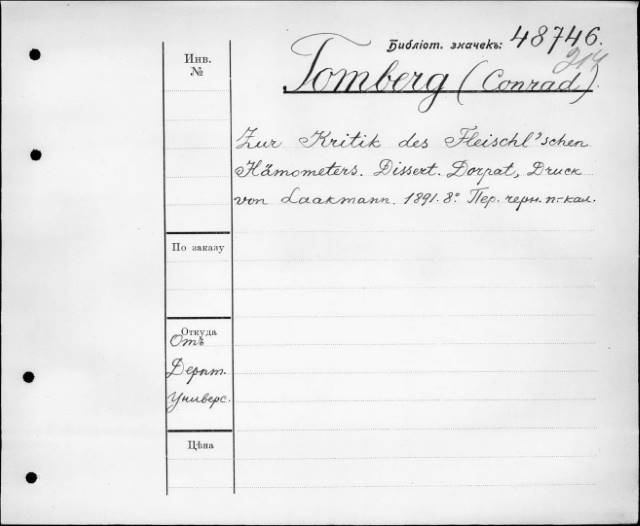 Библіот. значекъ: 48746.
214
Инв.
№
Tomberg (Conrad).
Zur Kritik des Fleischl'schen
Hämometers. Dissert. Dorpat, Druck
von Laakmann. 1891. 8º. Пер. черн. п.-кал.
По заказу
Откуда
Отъ
Дерпт.
Универс.
Цѣна